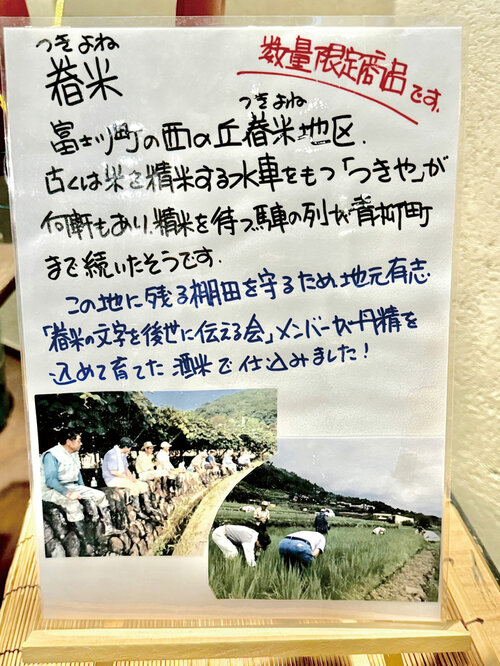 つきよね
舂米
数量限定商品です。
富士川町の西の丘舂米地区.
つきよね
古くは米を精米する水車をもつ「つきや」が
何軒もあり、精米を待つ馬車の列が青柳町
まで続いたそうです.
この地に残る棚田を守るため、地元有志
「舂米の文字を後世に伝える会」メンバーが丹精を
込めて育てた酒米で仕込みました!